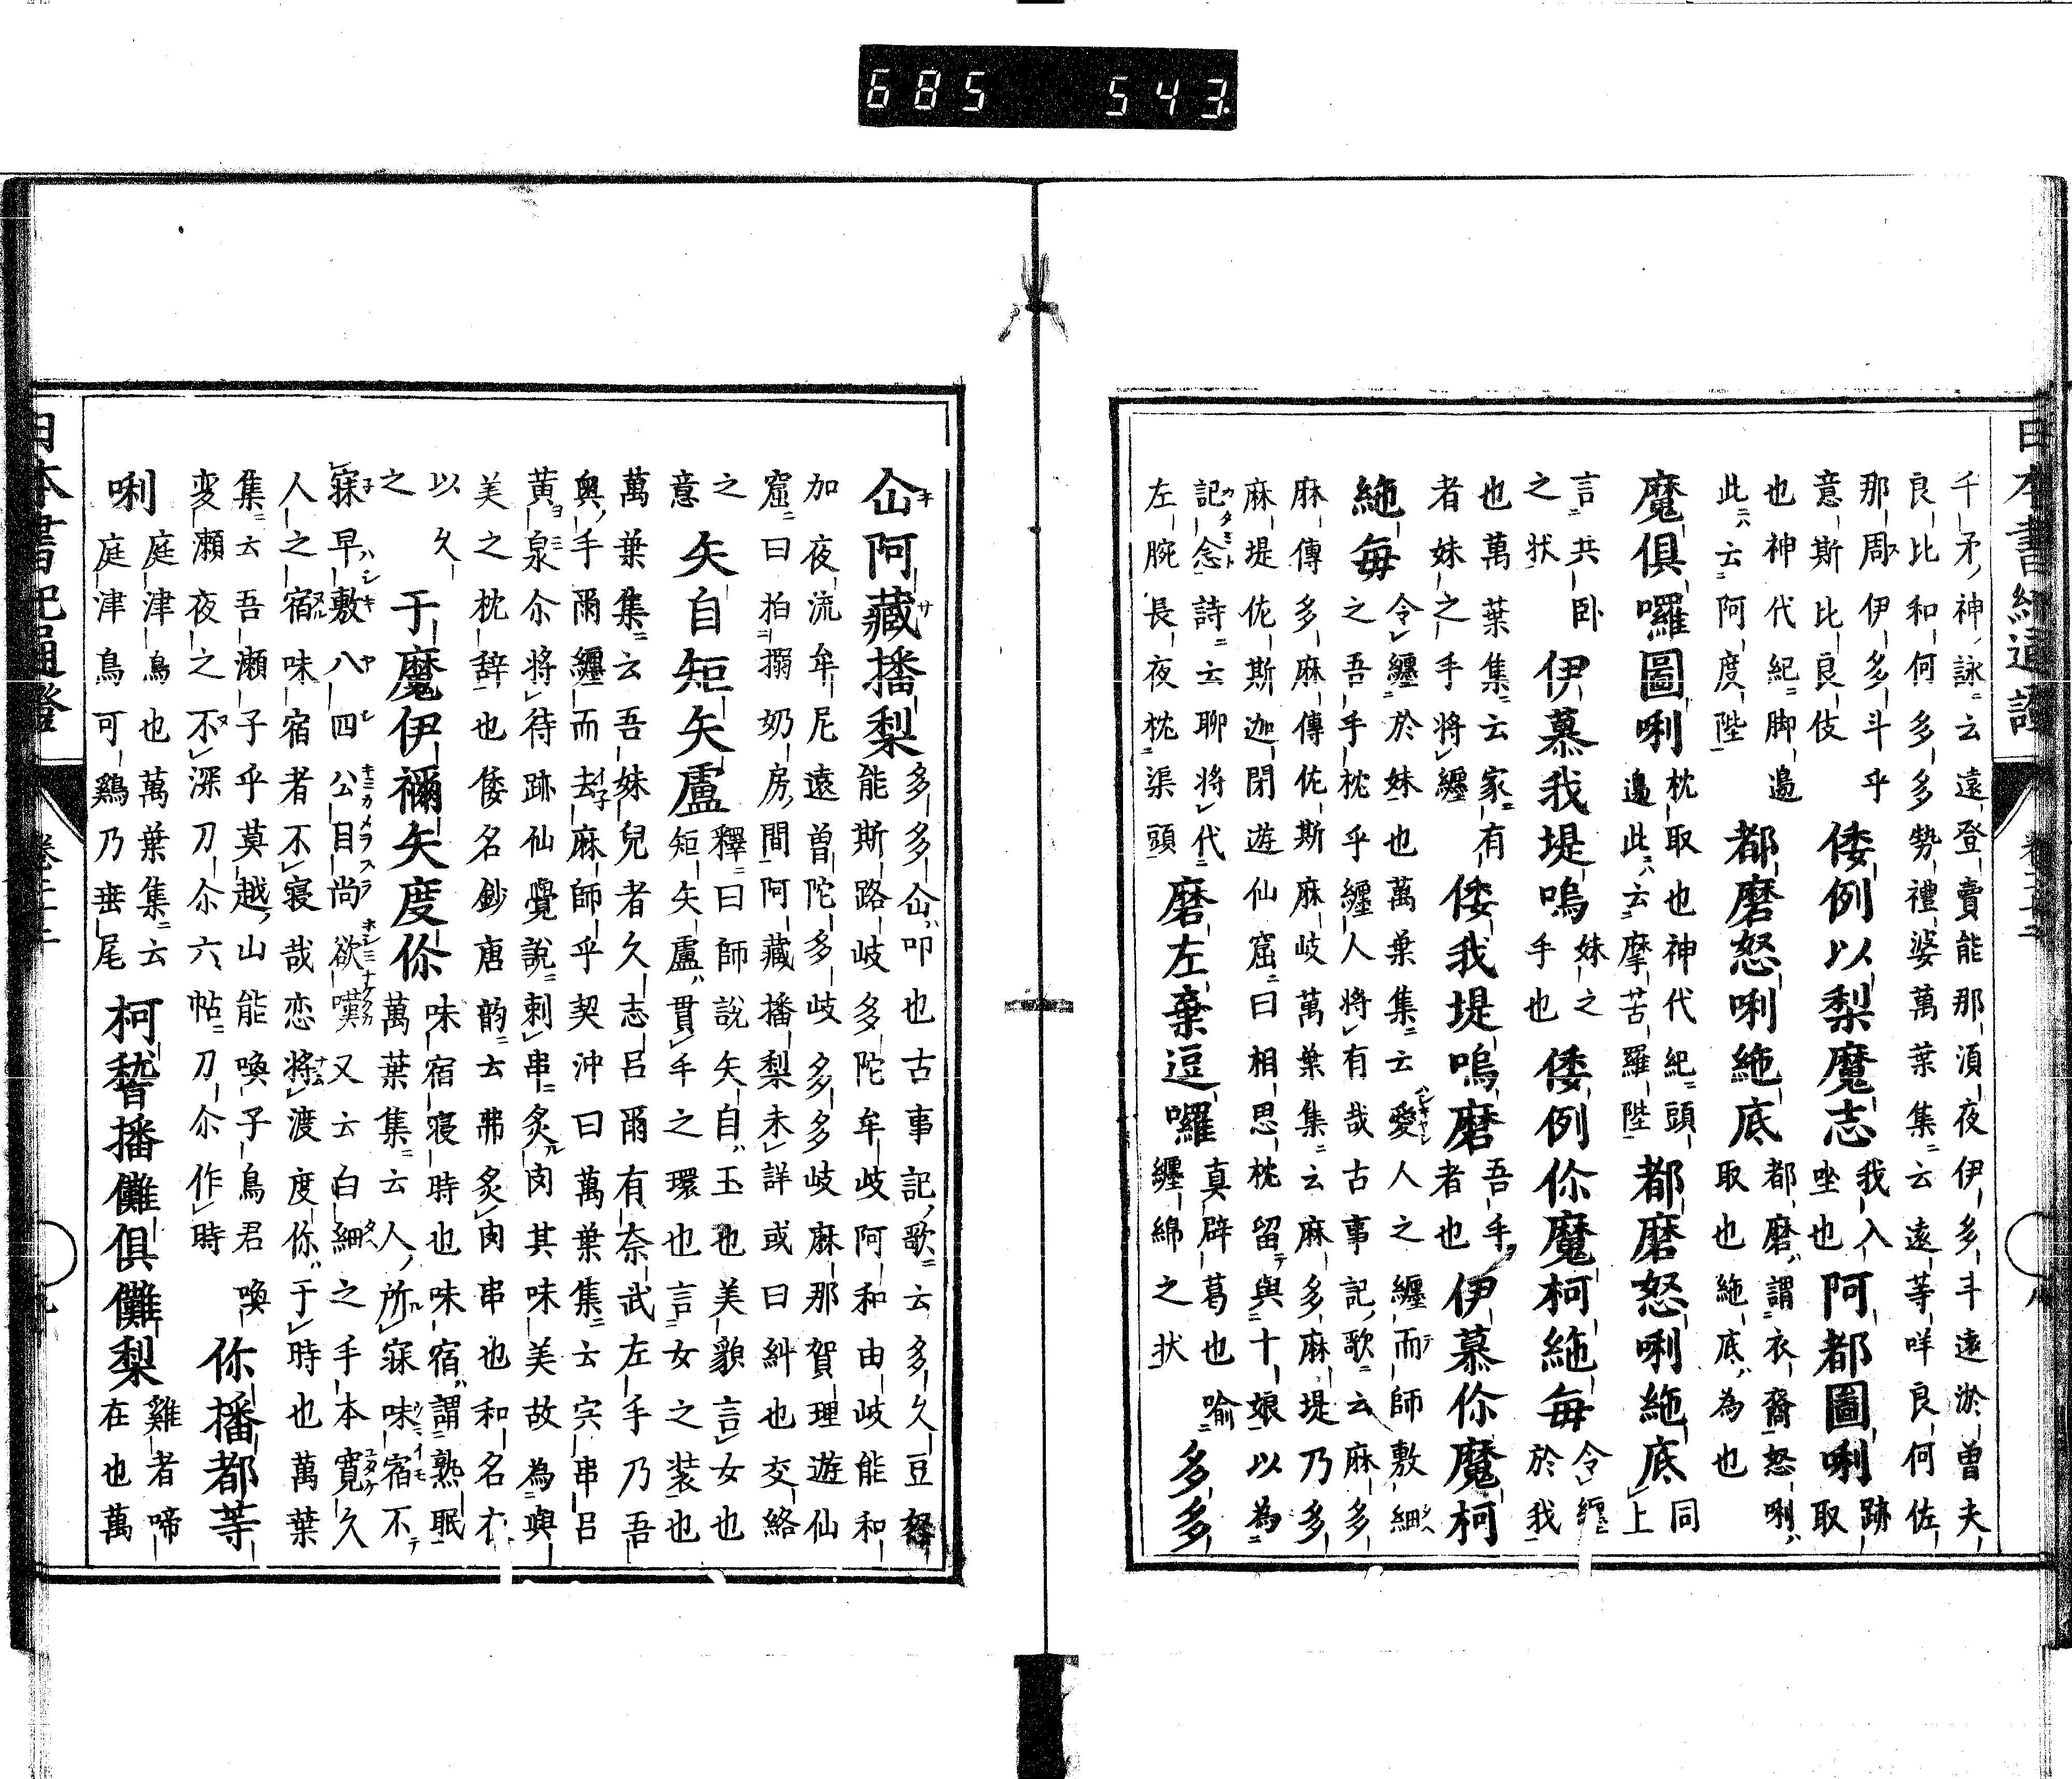 685 543
千矛神詠云遠登賣能那湏夜伊多斗遠淤曽夫
良比和何多多勢禮婆萬葉集云遠等咩良何佐
那周伊多斗乎
意斯比良伎
倭例以梨魔志
我入
坐也
阿都圖唎
跡
取
也神代紀脚邉
此云阿度陛
都磨怒唎絁底
都磨謂衣裔怒唎
取也絁底為也
魔倶囉圖唎
枕取也神代紀頭
邉此云摩苦羅陛
都磨怒唎絁底
同
上
言共卧
之状
伊慕我堤嗚
妹之
手也
倭例伱魔柯絁毎
令纏
於我
也萬葉集云家有
者妹之手將纏
倭我堤嗚磨
吾手
者也
伊慕伱魔柯
絁毎
令纏於妹也萬葉集云愛人之纏而師敷細
之吾手枕乎纏人將有哉古事記歌云麻多
麻傳多麻傳佐斯麻岐萬葉集云麻多麻堤乃多
麻堤佐斯迦閉遊仙窟曰相思枕留與十娘以為
記念詩云聊將代
左腕長夜枕渠頭
磨左棄逗囉
真辟葛也喩
纏綿之状
多多
仚阿藏播梨
多多仚叩也古事記歌云多久豆怒
能斯路岐多陀牟岐阿和由岐能和
加夜流牟尼遠曽陀多岐多多岐麻那賀理遊仙
窟曰拍搦奶房間阿藏播梨未詳或曰糾也交絡
之
意
矢自矩矢盧
釋曰師說矢自玉也美貌言女也
矩矢盧貫手之環也言女之装也
萬葉集云吾妹兒者久志呂爾有奈武左手乃吾
奥手爾纒而去麻師乎契沖曰萬葉集云宍串呂
黄泉尒將待跡仙覺說刺串炙肉其味美故為與
美之枕辞也倭名鈔唐韵云弗炙肉串也和名
以久
之
于魔伊禰矢度伱
味宿寝時也味宿謂熟眠
萬葉集云人所寐味宿不
寐早敷八四公目尚欲嘆又云白細之手本寛久
人之宿味宿者不寝哉恋將渡度伱于時也萬葉
集云吾瀬子乎莫越山能喚子鳥君喚
変瀬夜之不深刀尒六帖刀尒作時
伱播都等
唎
庭津鳥也萬葉集云
庭津鳥可鷄乃垂尾
柯稽播儺倶儺梨
雞者啼
在也萬